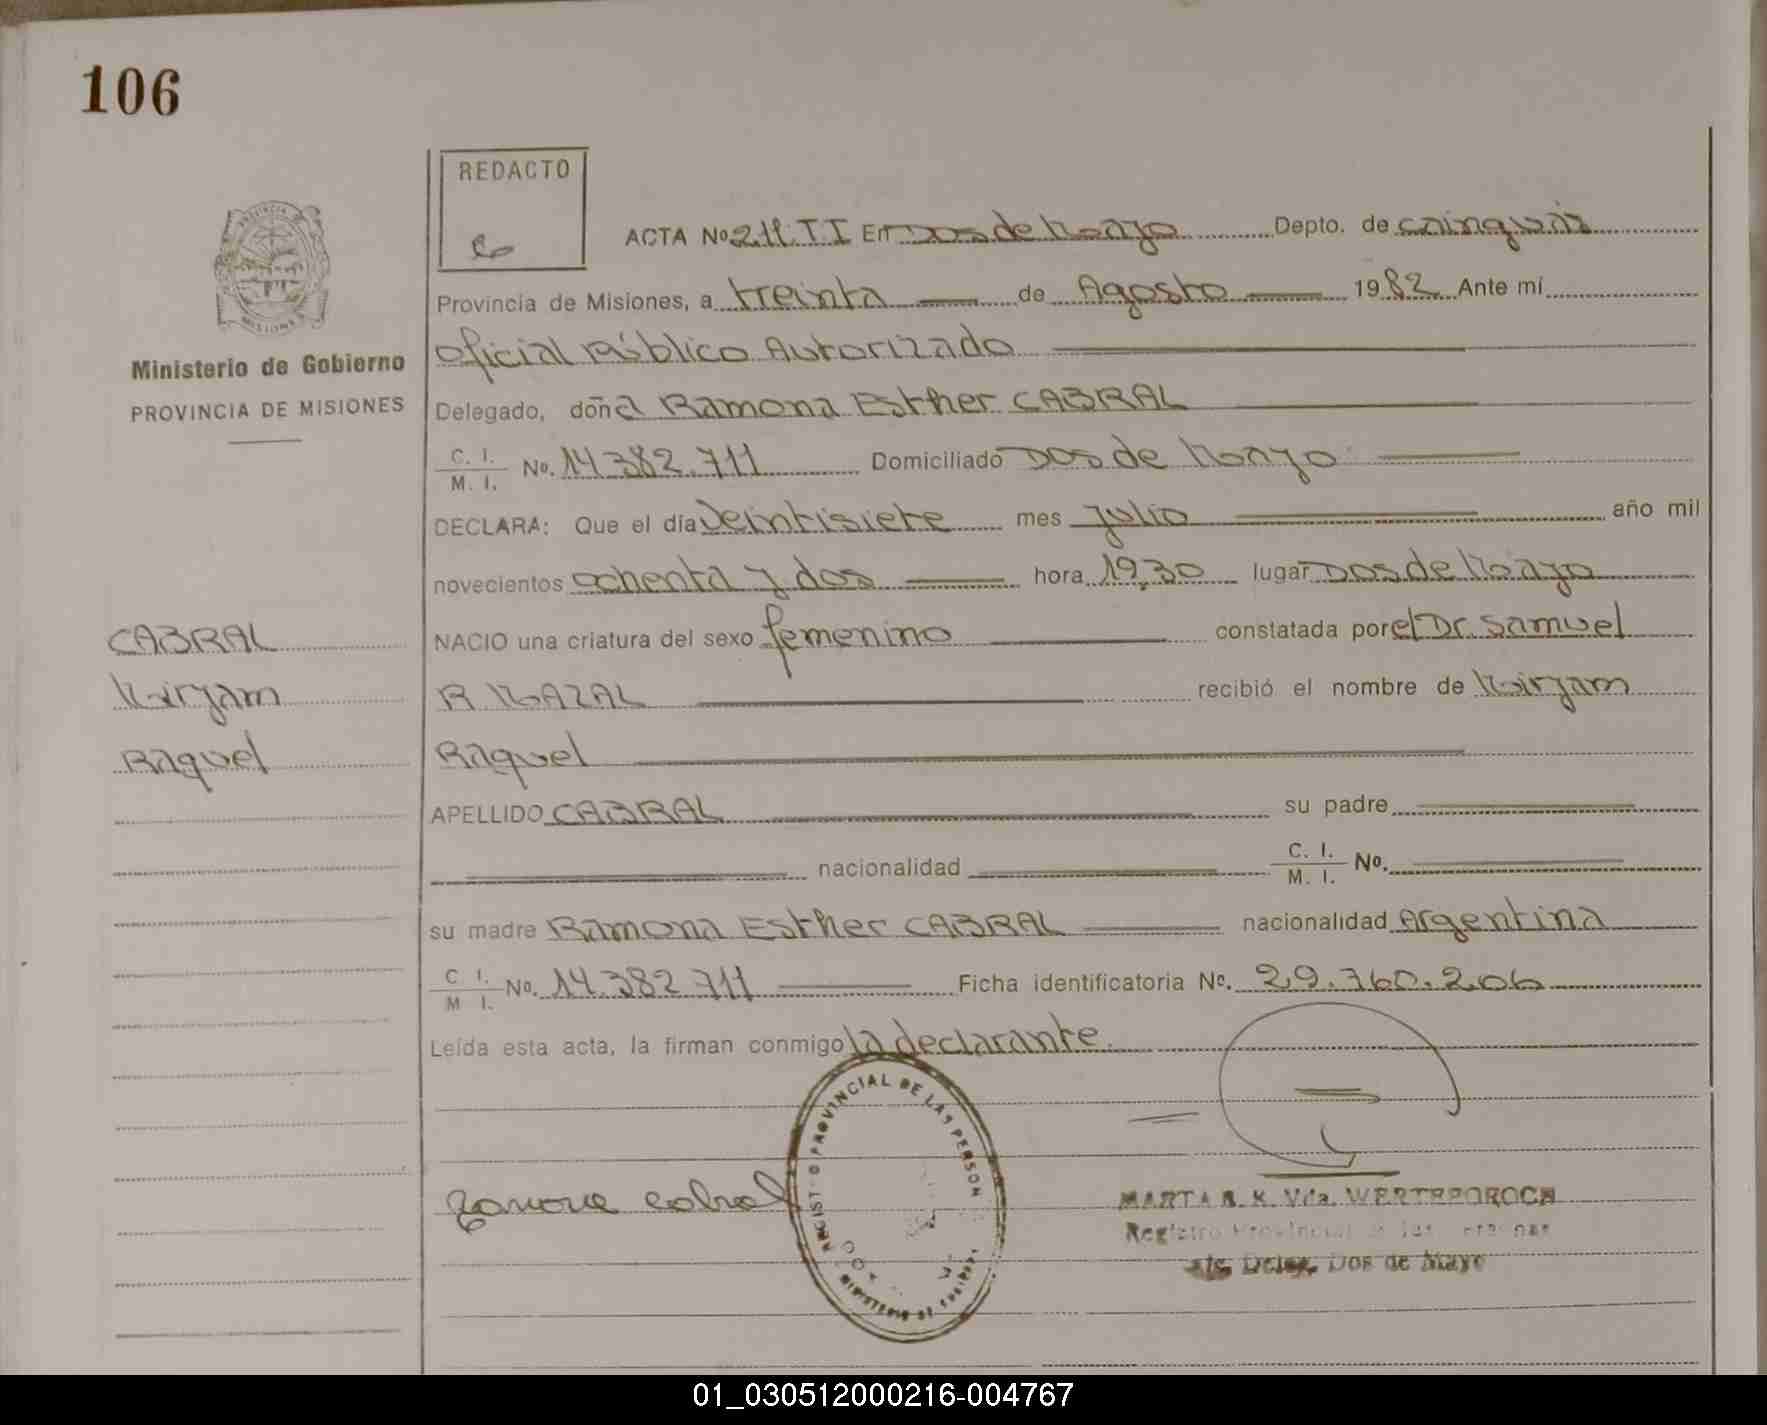 106
REDACTO
PROVINCIA DE
MISIONES
ACTA No 211.T I En Dos de Mayo Depto. de Cainguás
Provincia de Misiones, a treinta de Agosto 1982 Ante mí
Ministerio de Gobierno
PROVINCIA DE MISIONES
Oficial Público Autorizado
Delegado, doña Ramona Esther CABRAL
C. I.
M. I. No. 14.382.711 Domiciliado Dos de Mayo
DECLARA: Que el día Veintisiete mes julio año mil
novecientos ochenta y dos hora 19,30 lugar Dos de Mayo
CABRAL
Miryam
Raquel
NACIO una criatura del sexo femenino constatada por el Dr. Samuel
R MAZAL recibió el nombre de Miryam
Raquel
APELLIDO CABRAL su padre
nacionalidad C. I.
M. I. No.
su madre Ramona Esther CABRAL nacionalidad Argentina
C I.
M I. No. 14.382.711 Ficha identificatoria No. 29.760.206
Leída esta acta, la firman conmigo la declarante.
PROVINCIAL DE LAS PERSON
Ramona Cabral
MARTA Vda. WERTEPOROCH
Registro Provincial
Deleg. Dos de Mayo
01_030512000216-004767